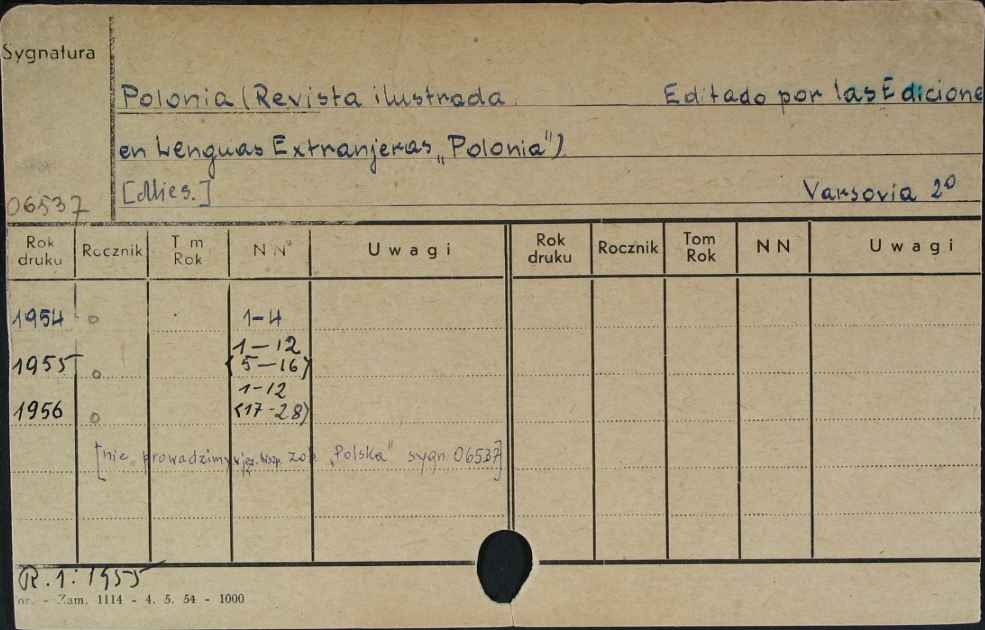 Sygnatura
Polonia (Revista ilustrada. Editado por las Edicione
en Lenguas Extranjeras „Polonia")
06537 [Mies.] Varsovia 2º
Rok druku Rocznik T m Rok N Nº Uwagi Rok druku Rocznik Tom Rok N N Uwagi
1954 o 1-4
1-12
1955 o (5-16)
1-12
1956 o (17-28)
[nie prowadzimy w jęz. hiszp. zob. „Polska" sygn. 06537]
R. 1: 1955
nr. - Zam. 1114 - 4. 5. 54 - 1000